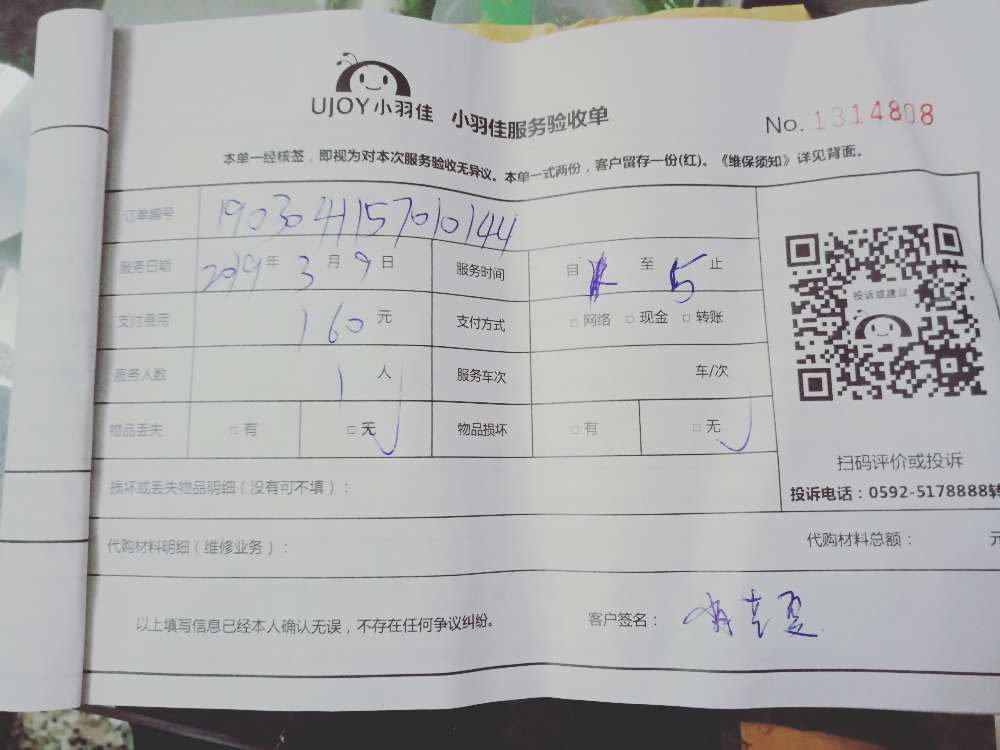 UJOY小羽佳 小羽佳服务验收单
No. 1314808
本单一经核签，即视为对本次服务验收无异议。本单一式两份，客户留存一份(红)。《维保须知》详见背面。
订单编号 1903041157010144
服务日期 2019年 3月 9日 服务时间 自 至 5 止
支付费用 160元 支付方式 □网络 □现金 □转账
服务人数 1 人 服务车次 车/次
物品丢失 □有 □无 物品损坏 □有 □无
投诉或建议
扫码评价或投诉
投诉电话：0592-5178888转
损坏或丢失物品明细（没有可不填）：
代购材料明细（维修业务）： 代购材料总额： 元
以上填写信息已经本人确认无误，不存在任何争议纠纷。 客户签名：